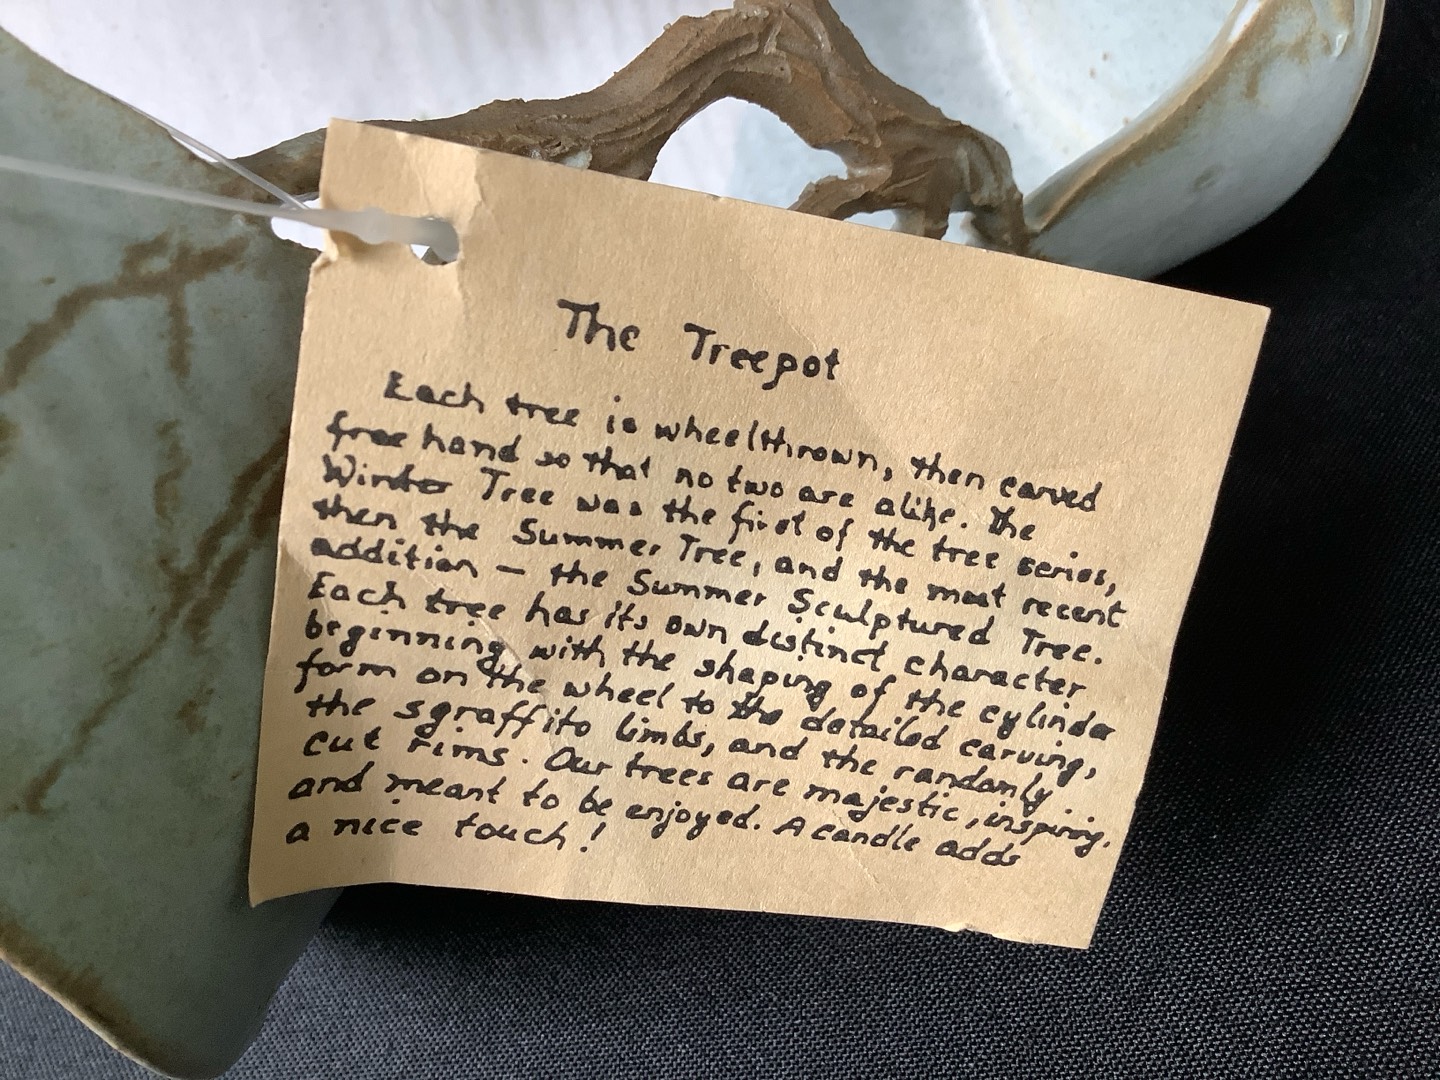 The Treepot
Each tree is wheelthrown, then carved
free hand so that no two are alike. The
Winter Tree was the first of the tree series,
then the Summer Tree, and the most recent
addition — the Summer Sculptured Tree.
Each tree has its own distinct character
beginning with the shaping of the cylinder
form on the wheel to the detailed carving,
the sgraffito limbs, and the randomly
cut rims. Our trees are majestic, inspiring,
and meant to be enjoyed. A candle adds
a nice touch!